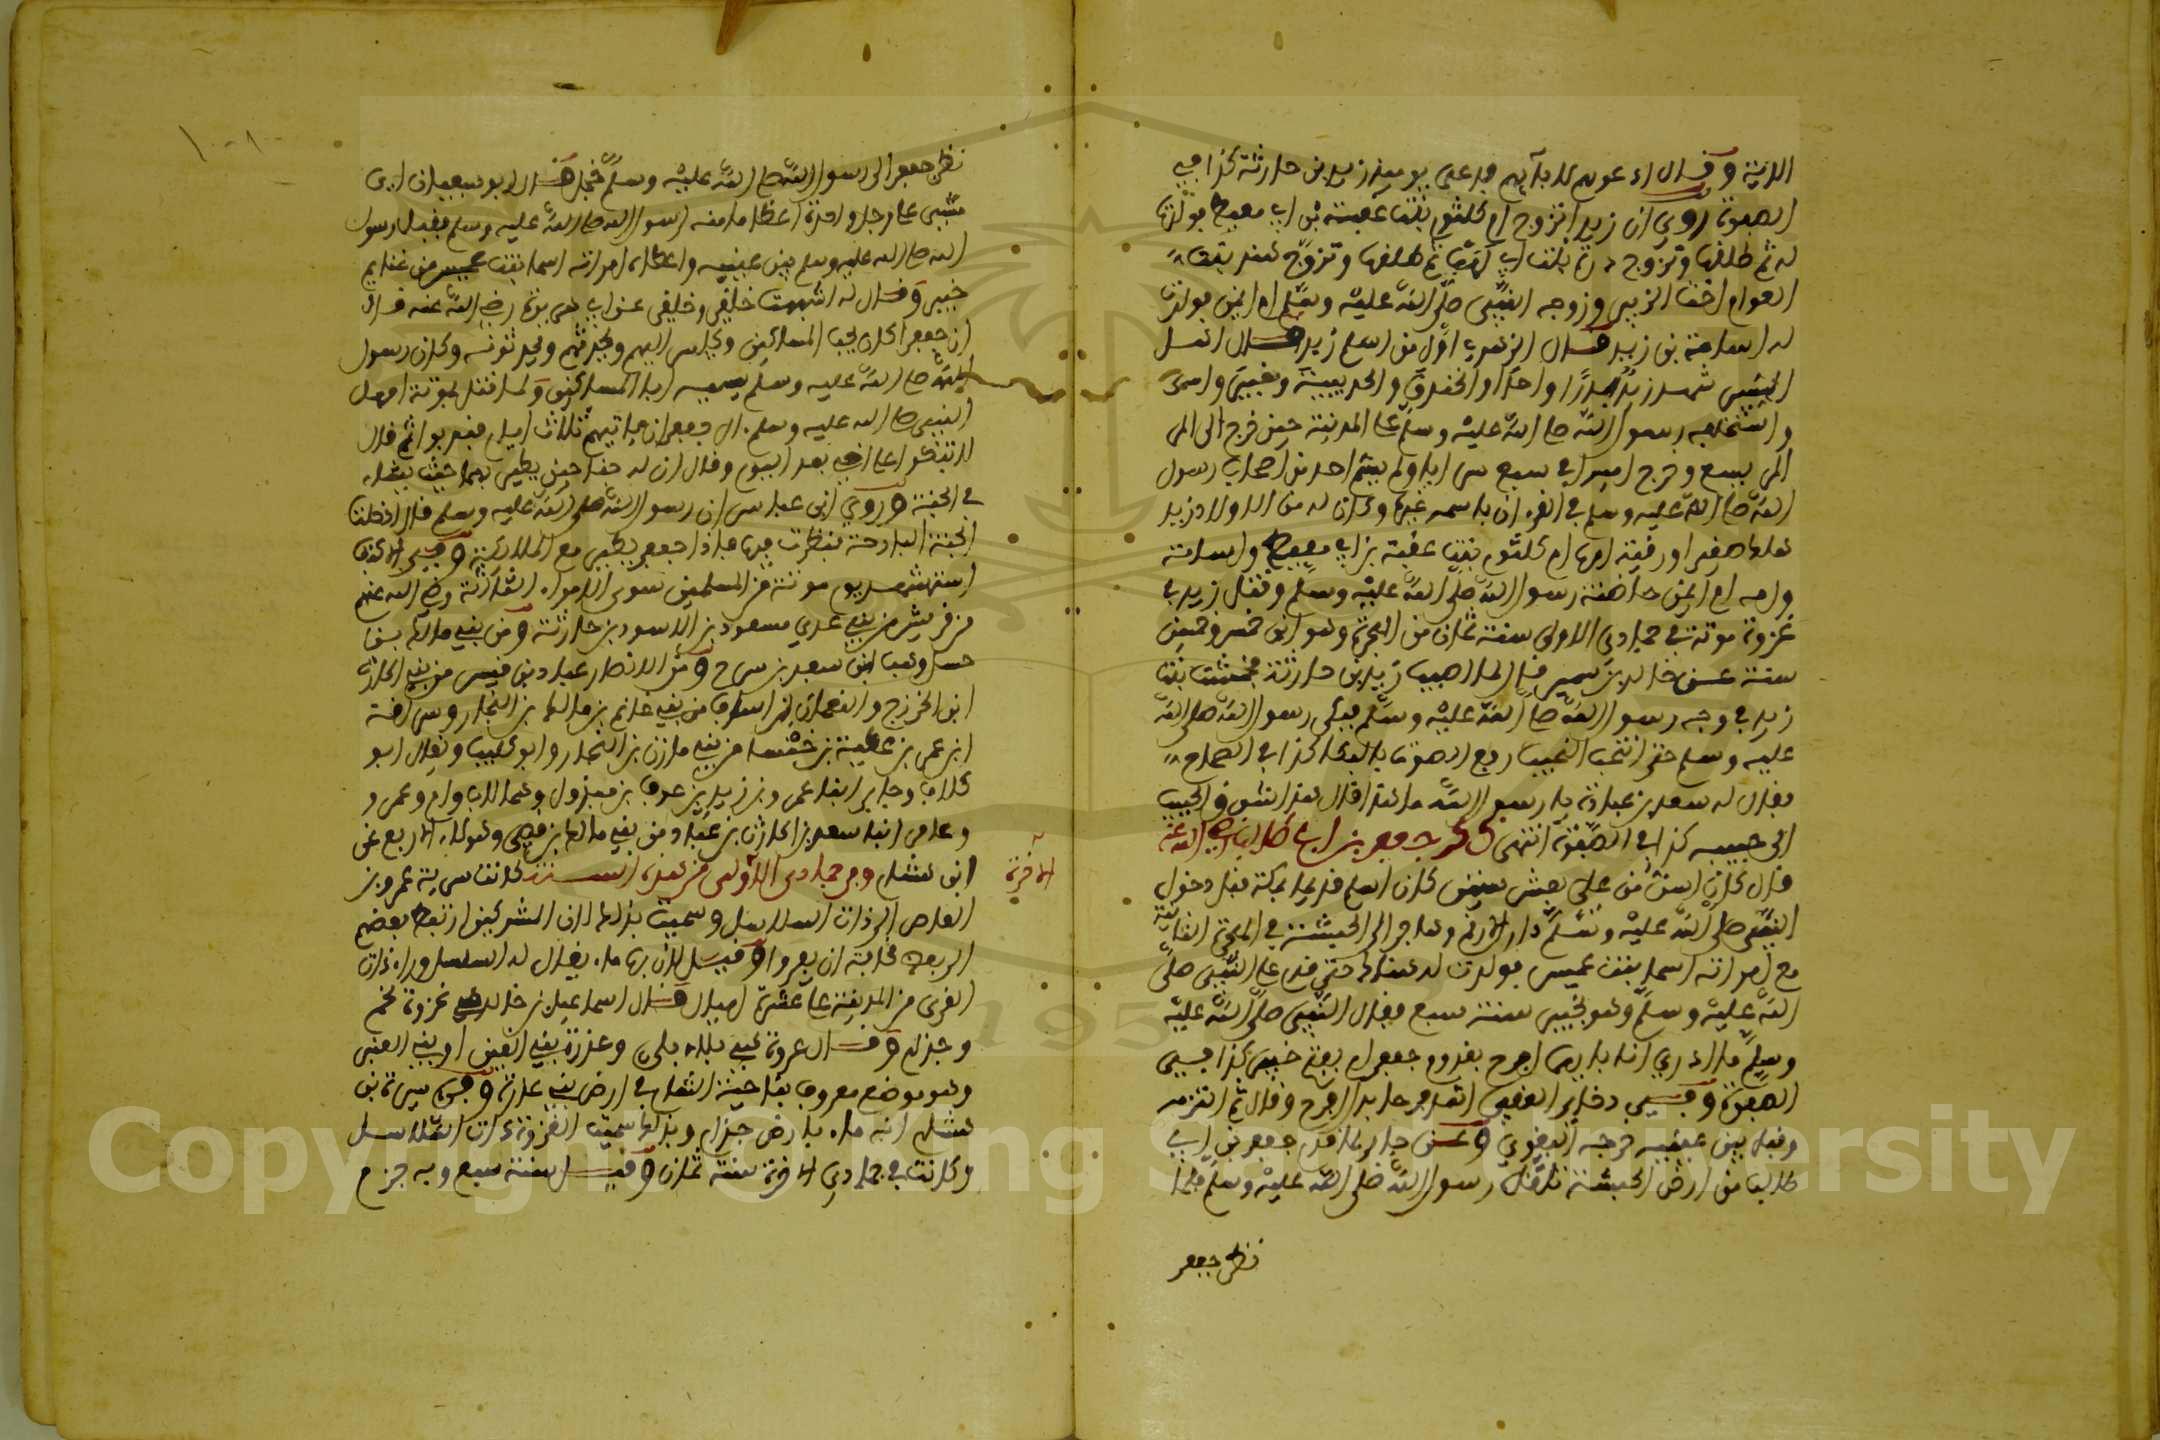 الاية وقال ادعوهم لابآيهم فدعى يوميذ زيد بن حارثة كذا في
الصفوة روي ان زيدا تزوج ام كلثوم بنت عقبة بن ابي معيط فولدت
له ثم طلقها وتزوج درة بنت ابي لهب ثم طلقها وتزوج هند بنت
العوام اخت الزبير وزوجه النبي صلى الله عليه وسلم ام ايمن فولدت
له اسامة بن زيد قال الزهري اول من اسلم زيد قال اهل
السير شهد زيد بدرا واحدا والخندق والحديبية وخيبر
واستخلفه رسول الله صلى الله عليه وسلم على المدينة حين خرج الى المر
المر يسع وخرج اميرا في سبع سرايا ولم يسم احد من اصحاب رسول
الله صلى الله عليه وسلم في القرءان باسمه غيره وكان له من الاولاد زيد
هلك صغيرا ورقية امها ام كلثوم بنت عقبة بن ابي معيط واسامة
وامه ام ايمن حاضنة رسول الله صلى الله عليه وسلم وقتل زيد في
غزوة موتة في جمادى الاولى سنة ثمان من الهجرة وهو ابن خمس وخمسين
سنة عن خالد بن سمير قال لما اصيب زيد بن حارثة بنت
زيد في وجه رسول الله صلى الله عليه وسلم فبكى رسول الله صلى الله
عليه وسلم حتى انتحب النحيب رفع الصوت بالبكا كذا في الصحاح
فقال له سعد بن عبادة يا رسول الله ما هذا قال هذا شوق الحبيب
الى حبيبه كذا في الصفوة انتهى ذكر جعفر بن ابي طالب رضي الله عنه
قال كان اسن من علي بعشر سنين كان اسلم قديما بمكة قبل دخول
النبي صلى الله عليه وسلم دار الارقم وهاجر الى الحبشة في الهجرة الثانية
مع امراته اسما بنت عميس فولدت له هناك حتى قدم على النبي صلى
الله عليه وسلم وهو بخيبر سنة سبع فقال النبي صلى الله عليه
وسلم ما ادري انا بايهما افرح بقدوم جعفر ام بفتح خيبر كذا في
الصفوة وفي دخاير العقبى ثم التزمه
وقبل بين عينيه خرجه البغوي وعن جابر لما قدم جعفر بن ابي
طالب من ارض الحبشة تلقاه رسول الله صلى الله عليه وسلم فلما
نظر جعفر
نظر جعفر الى رسول الله صلى الله عليه وسلم حجل قال ابو سعيد ان اي
مشى على رجل واحدة اعظاما منه لرسول الله صلى الله عليه وسلم فقبل رسول
الله صلى الله عليه وسلم بين عينيه واعطاه امراته اسما بنت عميس من غنايم
خيبر وقال له اشبهت خلقي وخلقي عن ابي هريرة رضي الله عنه قال
ان جعفرا كان يحب المساكين ويجلس اليهم ويحدثهم ويحدثونه وكان رسول
الله صلى الله عليه وسلم يسميه ابا المساكين ولما قتل بموتة امهل
النبي صلى الله عليه وسلم ال جعفر ان ياتيهم ثلاث ايام فقربوا ثم قال
لا تبكوا على اخي بعد اليوم وقال ان له جناحين يطير بهما حيث يشاء
في الجنة وروي ابن عباس ان رسول الله صلى الله عليه وسلم قال دخلت
الجنة البارحة فنظرت فيها فاذا جعفر يطير مع الملايكة وفي الاكتفا
استشهد يوم موتة من المسلمين سوى الامراء الثلاثة رضي الله عنهم
من قريش من بني عدي مسعود بن الاسود بن حارثة ومن بني مالك بن
حسل وهب بن سعد بن سرح ومن الانصار عباد بن قيس من بني الحارث
ابن الخزرج والنعمان بن اساف من بني غانم بن مالك بن النجار وسراقة
ابن عمر بن عطية بن خنسا من بني مازن بن النجار وابو كليب ويقال ابو
كلاب وجابر ابنا عمرو بن زيد بن عوف بن مبذول وهما لاب وام وعمرو
وعامر ابنا سعد بن الحارث بن عباد من بني مالك بن قصي وهولاء الاربع عن
ابن هشام وفي جمادى الاولى من هذه السنة كانت سرية عمرو بن
الاخرة
العاص الى ذات السلاسل وسميت بذلك لان المشركين ارتبط بعضهم
الى بعض مخافة ان يفروا وقيل لان بها ماء يقال له السلسل وراء ذات
القرى من المدينة على عشرة اميال قال اسماعيل بن خالد هي غزوة لخم
وجذام وقال عروة هي بلاد بلى وعذرة بني القين او بني العنبر
وهو موضع معروف بناحية الشام في ارض بني عذرة وفي سيرة ابن
هشام انه ماء بارض جذام وبذلك سميت الغزوة ذات السلاسل
وكانت في جمادى الاخرة سنة ثمان وقيل سنة سبع وبه جزم
Copyright © King Saud University
1957